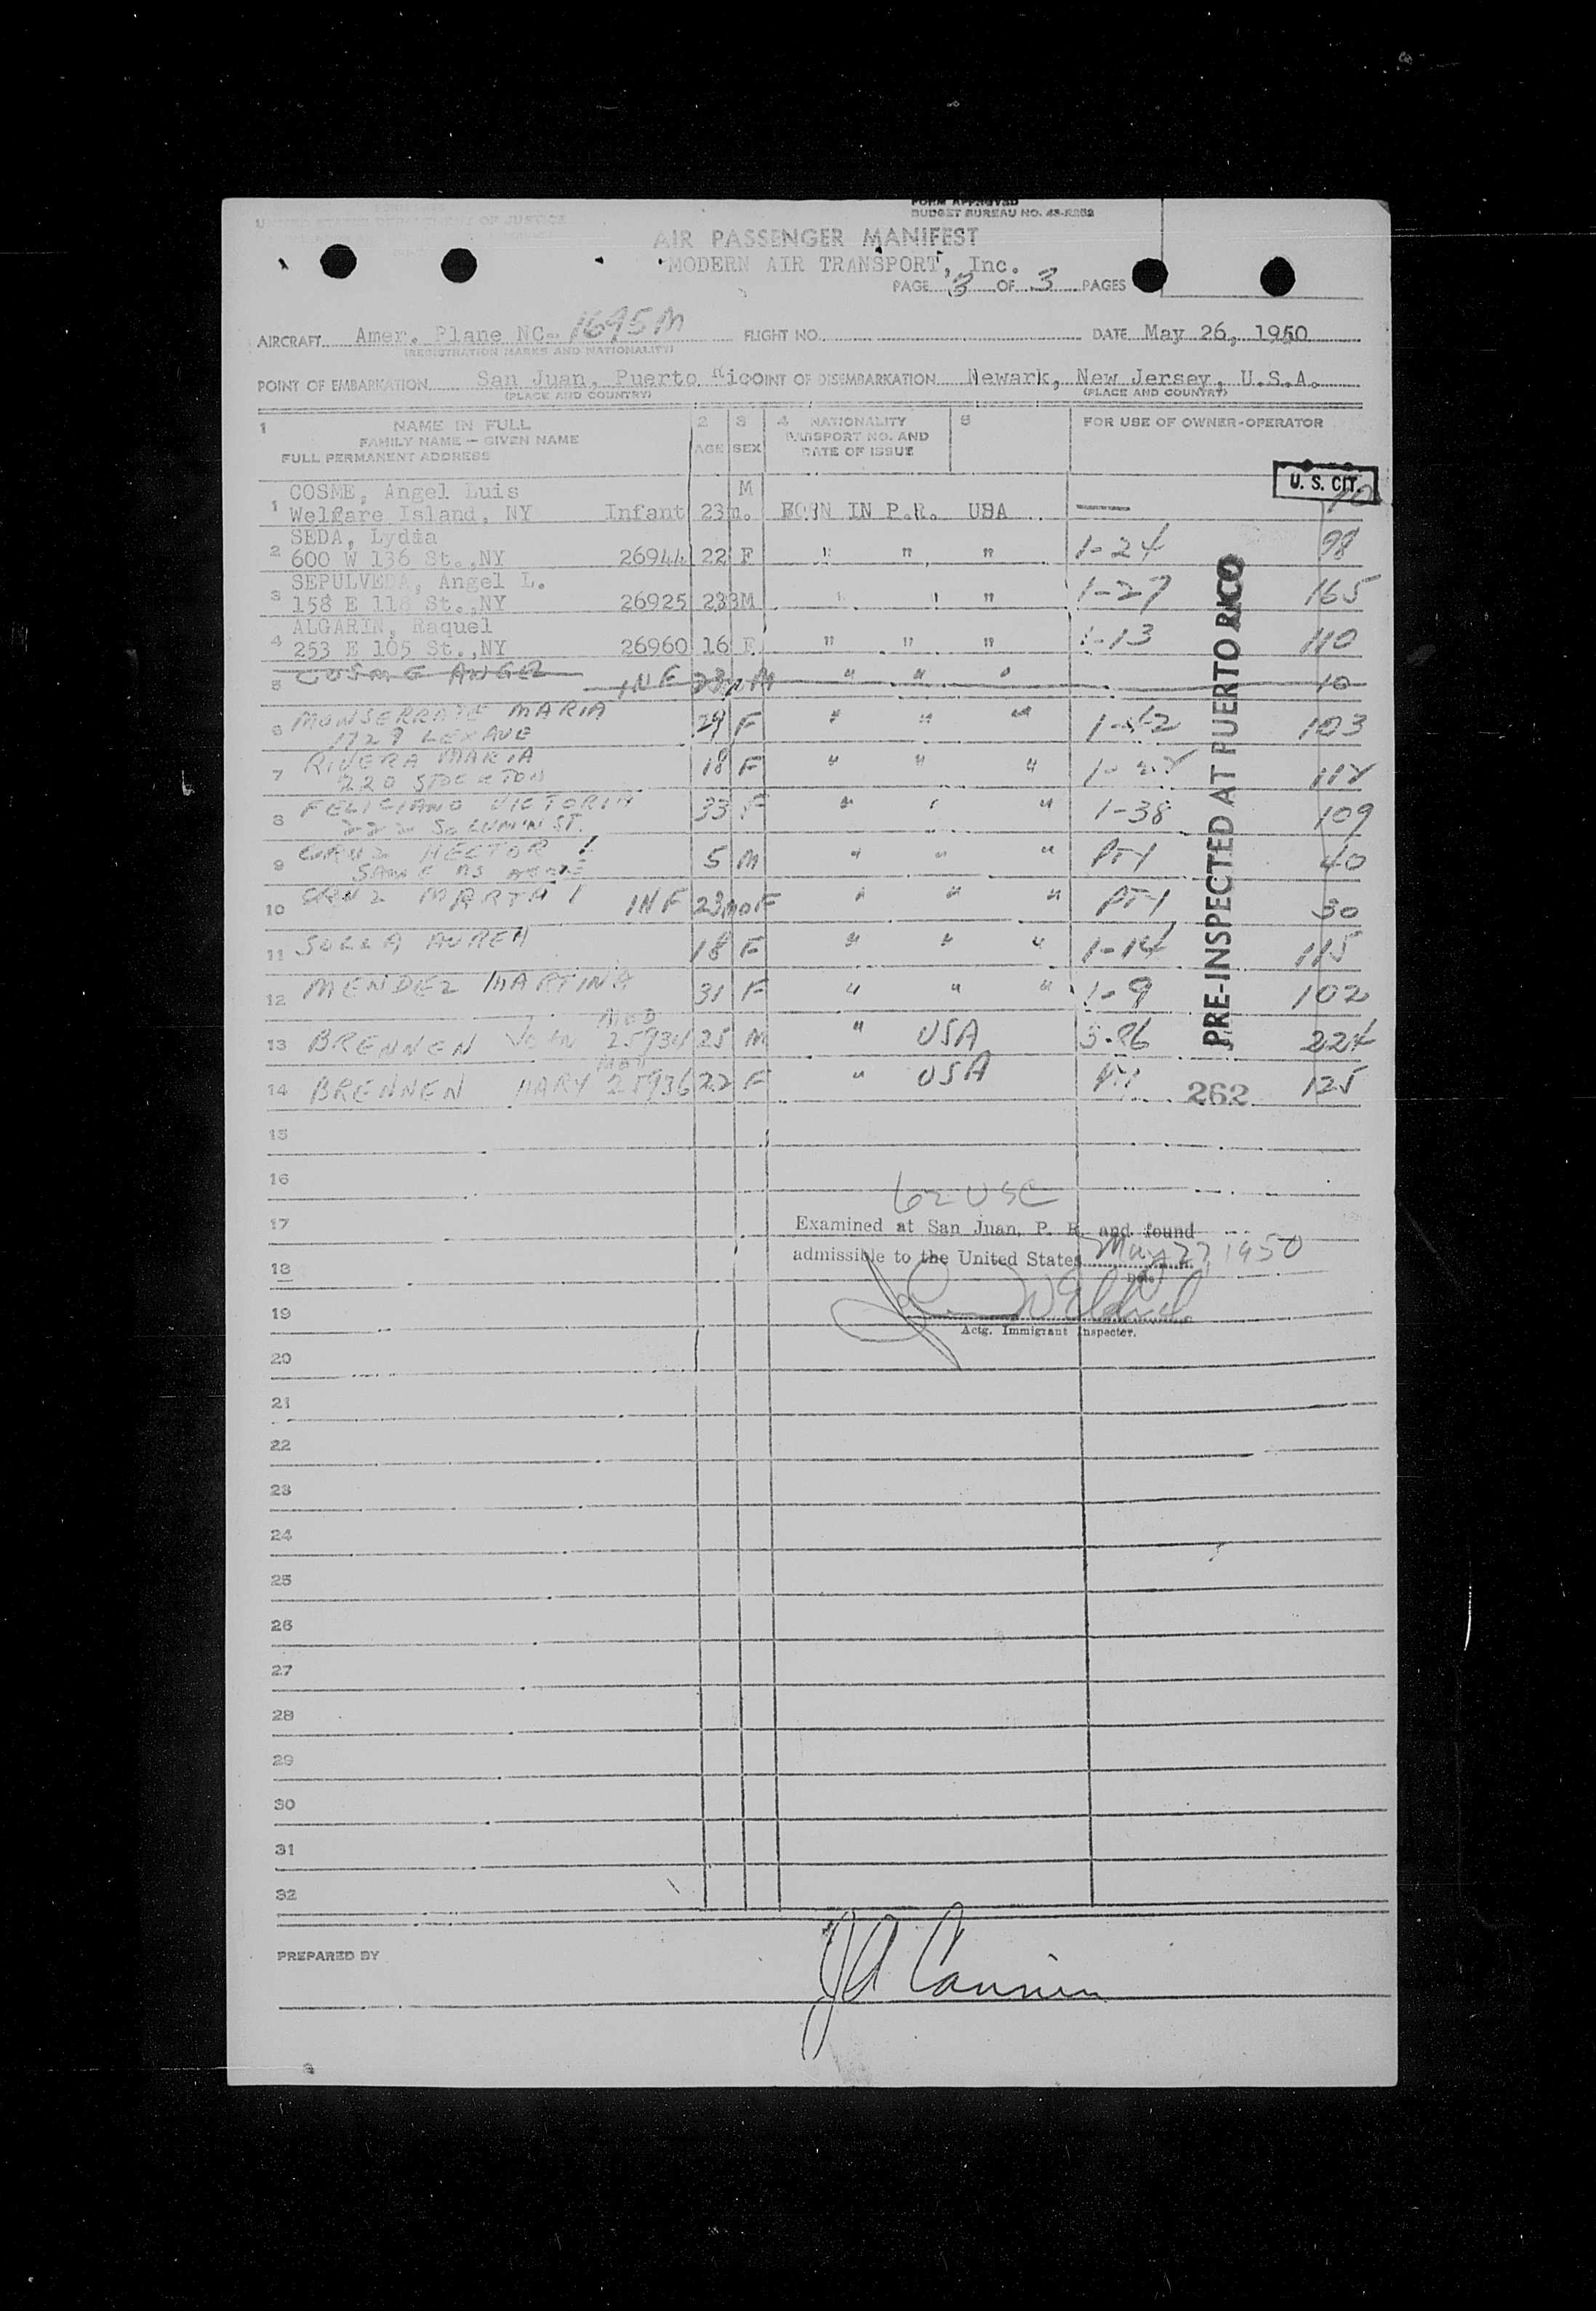 FORM APPROVED
BUDGET BUREAU NO. 43-R252
AIR PASSENGER MANIFEST
MODERN AIR TRANSPORT, Inc.
PAGE 3 OF 3 PAGES
AIRCRAFT Amer. Plane NC- 1695M FLIGHT NO. DATE May 26, 1950
(REGISTRATION MARKS AND NATIONALITY)
POINT OF EMBARKATION San Juan, Puerto Rico POINT OF DISEMBARKATION Newark, New Jersey, U.S.A.
(PLACE AND COUNTRY) (PLACE AND COUNTRY)
1 NAME IN FULL 2 3 4 NATIONALITY 5 FOR USE OF OWNER-OPERATOR
FAMILY NAME — GIVEN NAME PASSPORT NO. AND
FULL PERMANENT ADDRESS AGE SEX DATE OF ISSUE
U. S. CIT.
COSME, Angel Luis M
1 Welfare Island, NY Infant 23m. BORN IN P.R. USA — 10
SEDA, Lydia
2 600 W 136 St.,NY 26944 22 F " " " 1-24 98
SEPULVEDA, Angel L.
3 158 E 118 St.,NY 26925 23 M " " " 1-27 165
ALGARIN, Raquel
4 253 E 105 St.,NY 26960 16 F " " " 1-13 110
5 COSME ANGEL INF 23m M " " " 10
6 MONSERRATE MARIA 29 F " " " 103
1729 LEX AVE
7 RIVERA MARIA 18 F " " "
220 STOCKTON
8 FELICIANO VICTORIA 33 F " " " 1-38 109
222 ST.
9 HECTOR 5 M " " " PTY 40
SAME AS ABOVE
10 MARTA INF 23mo F " " " PTY 30
11 AUREA 18 F " " " 1-14 115
12 MENDEZ MARTINA 31 F " " " 1-9 102
13 BRENNEN JOHN 25934 25 M " USA 3-86 224
14 BRENNEN MARY 25936 22 F " USA 125
PRE-INSPECTED AT PUERTO RICO
262
15
16
62 USC
17 Examined at San Juan, P. R. and found
admissible to the United States May 27, 1950
18 Date
19
Actg. Immigrant Inspector.
20
21
22
23
24
25
26
27
28
29
30
31
32
PREPARED BY